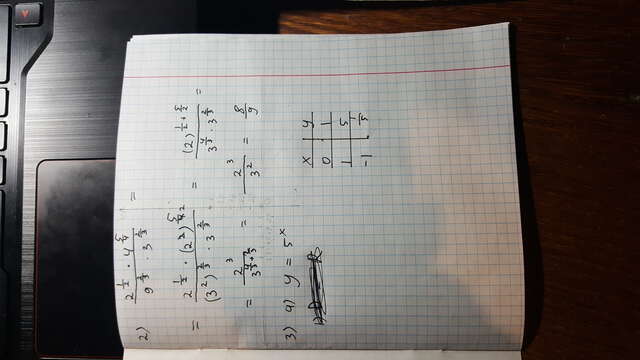 2) (2^(1/2) · 4^(5/4)) / (9^(2/3) · 3^(2/3)) =
= (2^(1/2) · (2²)^(5/4)) / ((3²)^(2/3) · 3^(2/3)) = (2)^(1/2 + 5/2) / (3^(4/3) · 3^(2/3)) =
= 2³ / 3^(4/3 + 2/3) = 2³ / 3² = 8/9
3) a) y = 5^x
x | y
0 | 1
1 | 5
-1 | 1/5